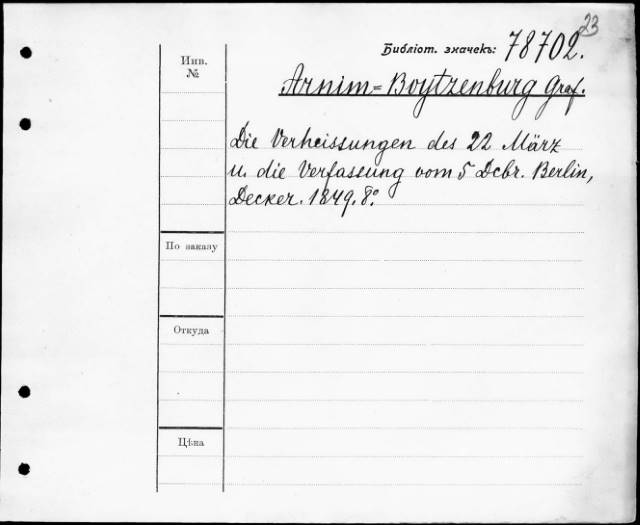 23
Библіот. значекъ: 78702.
Инв.
№
Arnim=Boytzenburg Graf.
Die Verheissungen des 22 März
u. die Verfassung vom 5 Dcbr. Berlin,
Decker. 1849. 8º.
По заказу
Откуда
Цѣна